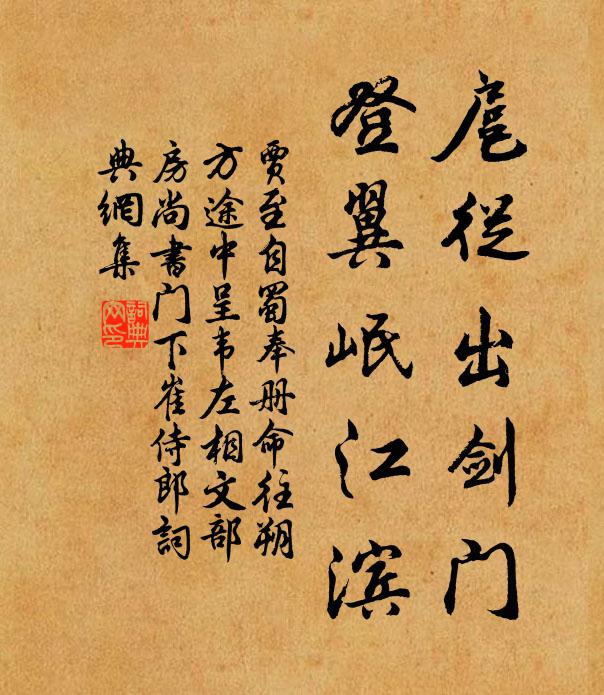 扈從出剑门
登翼岷江滨
賈至自蜀奉册命往朔
方途中呈韦左相文部
房尚書门下崔侍郎詞
典網集
詞典
网印